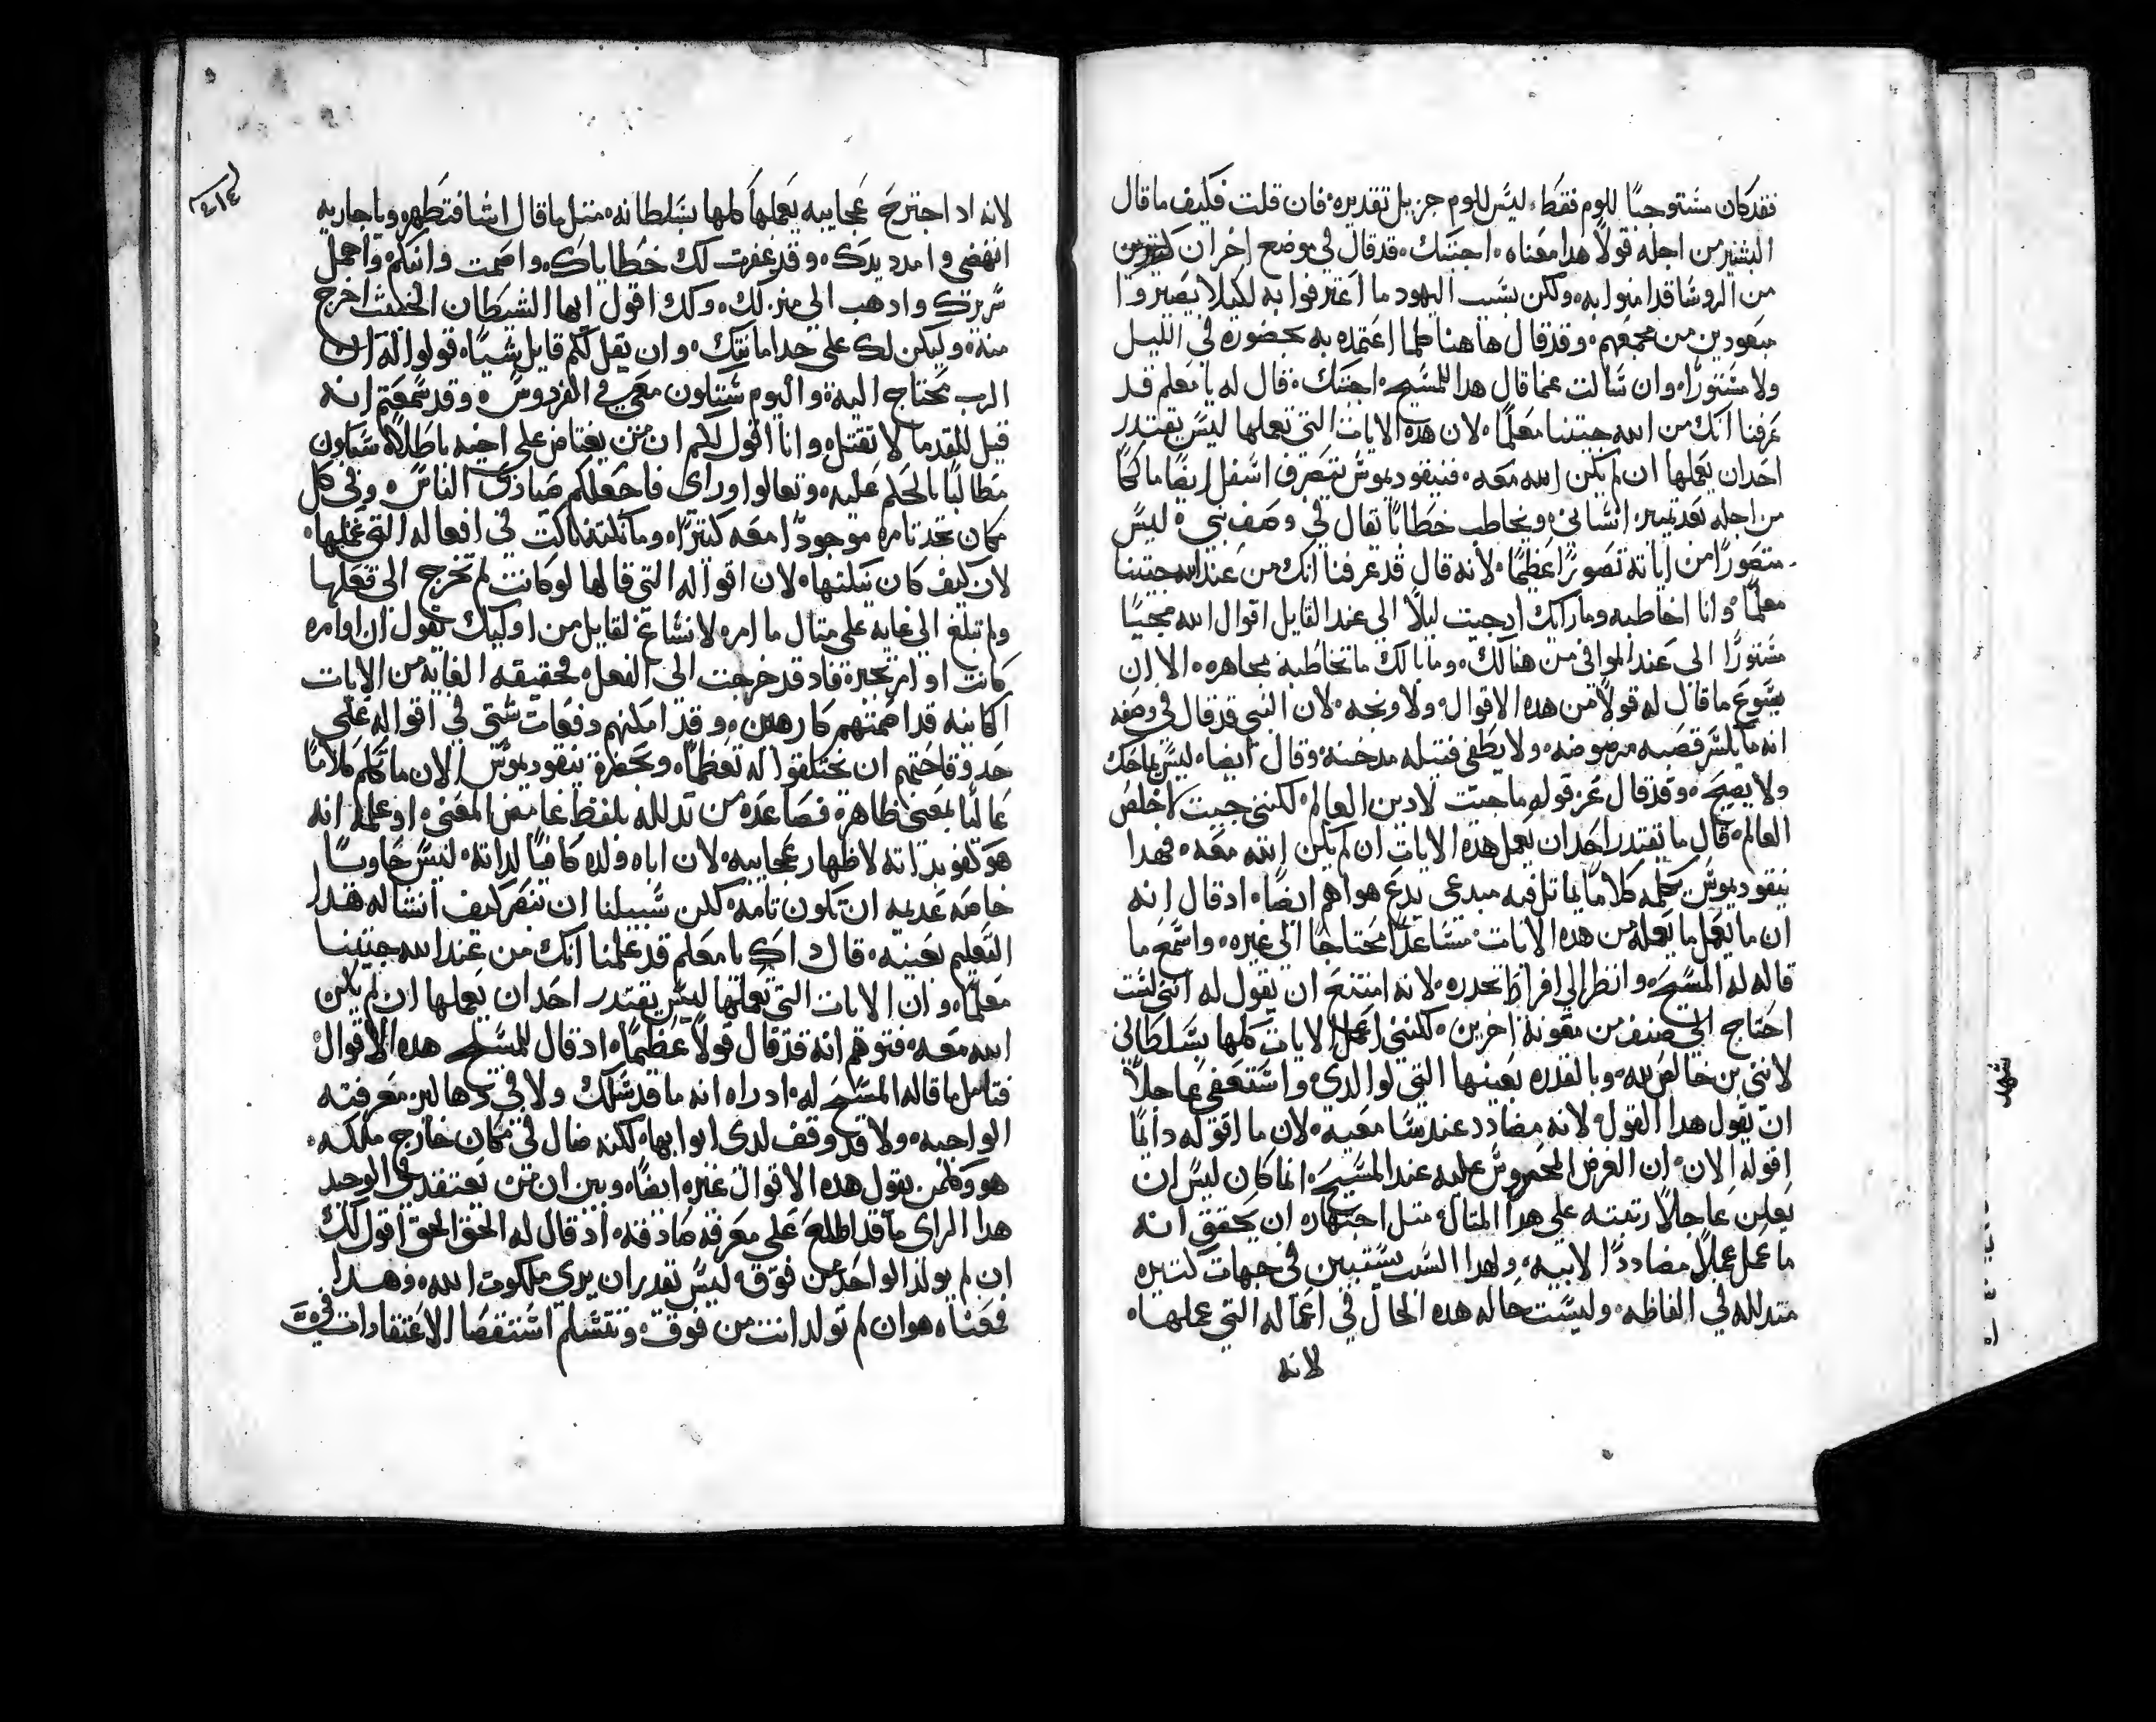 فقد كان مستوجبًا للوم فقط، ليس للوم جزيل تقديره، فان قلت فكيف ما قال
البشير من اجله قولاً هدا معناه، اجبتك، قد قال في موضع اخر ان كتيرين
من الروسا قد امنوا به، ولكن بسبب اليهود ما اعترفوا به لكيلا يصيروا
مبعودين من مجمعهم، وقد قال هاهنا كلما اعتمده به بحضوره في الليل
ولا مستورًا، وان سالت عما قال هدا للمسيح، اجبتك، قال له يا معلم قد
عرفنا انك من الله جيتنا معلمًا، لان هده الايات التي تعملها ليس يقتدر
احد ان يعملها ان لم يكن الله معه، فنيقوديموس يتصرف اسفل ايضًا ما كًا
من اجله بعد تمييز انساني، ويخاطب خطابًا يقال في وصف نبي، ليس
متصورًا من اياته تصويرًا عظيمًا، لانه قال قد عرفنا انك من عند الله جيتنا
معلمًا، وانا اخاطبه وما رايك اد جيت ليلاً الى عند القايل اقوال الله مجيبًا
مستورًا الى عند الموافي من هنالك، وما بالك ما تخاطبه مجاهره، الا ان
يسوع ما قال له قولاً من هده الاقوال، ولا وبخه، لان النبي قد قال في وصفه
انه ما يكسر قصبه مرضوضه، ولا يطفى فتيله مدخنه، وقال ايضا، ليس يماحك
ولا يصيح، وقد قال عن قوله ما جيت لادين العالم، لكنني جيت لاخلص
العالم، قال ما يقتدر احد ان يعمل هده الايات ان لم يكن الله معه، فهدا
نيقوديموس يكلمه كلامًا يماتل فيه مبدعى بدع هواهم ايضًا، اد قال انه
ان ما يعمل ما يعمله من هده الايات، متساعدًا محتاجًا الى غيره، واسمع ما
قاله له المسيح، وانظر الى افراط تحدره، لانه امتنع ان يقول له انني لست
احتاج الى صنف من معونة اخرين، لكنني اعمل الايات كلها بسلطاني
لانني بن خالص لله، وبالقدره بعينها التي لوالدي، واستعفى عاجلاً
ان يقول هدا القول، لانه مضادد عند سامعيه، لان ما اقوله دايمًا
اقوله الان، ان الغرض المحروس عليه عند المسيح، انما كان ليس ان
يعلن عاجلاً رتبته على هدا المتال، متل اجتهاده ان يحقق انه
ما عمل عملاً مضاددًا لابيه، ولهدا السبب يستبين في جهات كتيره
متدلله في الفاظه، وليست حاله هده الحال في اعماله التي عملها،
لانه
لانه اد اجترح عجايبه يعملها كلها بسلطانه، متل ما قال اشا فتطهر، ويا جاريه
انهضي وامدد يدك، وقد غفرت لك خطاياك، واصمت وانبكم، واحمل
سريرك وادهب الى منزلك، ولك اقول ايها الشيطان الخبيث اخرج
منه، وليكن لك على حد امانتك، وان يقل لكم قايل شيًا، قولوا له ان
الرب محتاج اليه، واليوم ستكون معي في الفردوس، وقد سمعتم انه
قيل للقدما لا تقتل، وانا اقول لكم ان من يغتاض على اخيه باطلاً، سيكون
مطالبًا بالحكم عليه، وتعالوا وراي فاجعلكم صيادي الناس، وفي كل
مكان تجد تامره موجودًا معه كتيرًا، وما تلتد ناكت في افعاله التي عملها،
لان كيف كان نبلتها، لان اقواله التي قالها لو كانت لم تخرج الى فعلها
ولم تبلغ الى غايه على متال ما امره لانساغ لقايل من اوليك يقول ان اوامره
كانت اوامر تجبر، فاد قد خرجت الى الفعل، فحقيقه الغايه من الايات
الكاينه قد اصمتتهم كارهين، وقد امكنهم دفعات شتى في اقواله على
حد وقاحتهم ان يختلقوا له تعظمًا، وبحضرة نيقوديموس الان ما تكلم كلامًا
عاليًا بمعنى ظاهر، فصاعده من تدلله بلفظ غامض المعنى، او علمه انه
هو كفو بداته لاظهار عجايبه، لان اباه ولده كافيًا لداته، ليس حاويًا
خاصه عديمه ان تكون تامه، لكن سبيلنا ان نبصر كيف انشا له هدا
التعليم بعينه، قال داك يا معلم قد علمنا انك من عند الله جيتنا
معلمًا، وان الايات التي تعملها ليس يقتدر احد ان يعملها ان لم يكن
الله معه، فتوهم انه قد قال قولاً عظيمًا، اد قال للمسيح هده الاقوال
فتامل ما قاله المسيح له، اد راه انه ما قد سلك ولا في دهاليز معرفته
الواجبه، ولا قد وقف لدى ابوابها، لكنه ضال في مكان خارج ملكه،
هو وكلمن يقول هده الاقوال غيره ايضًا، وبين ان من يعتقد في الوحيد
هدا الراى ما قد اطلع على معرفه صادقه، اد قال له الحق الحق اقول لك
ان لم يولد الواحد من فوق ليس يقدر ان يرى ملكوت الله، وهدا
فمعناه هو ان لم تولد انت من فوق، وتتسلم استقصا الاعتقادات في